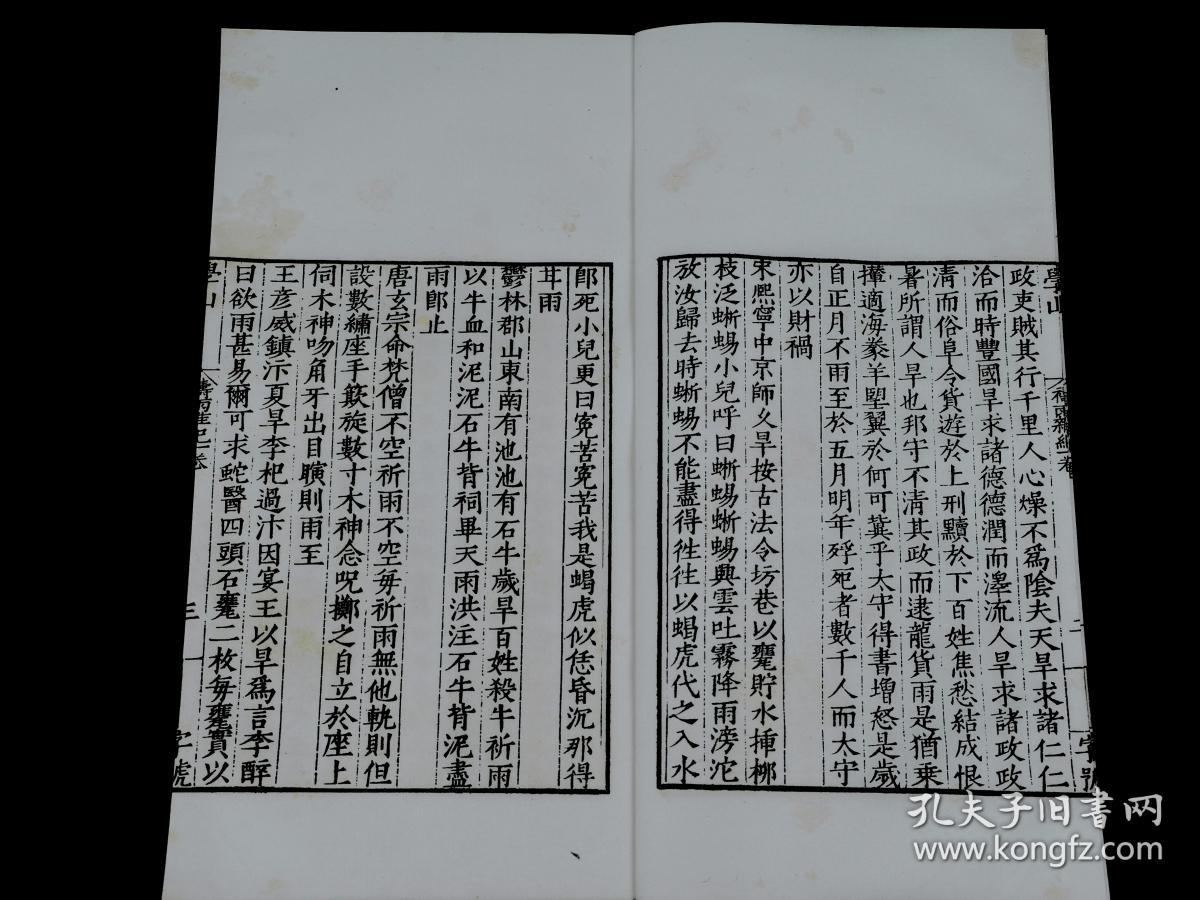 學山
政吏賊其行千里人心燥不爲陰夫天旱求諸仁仁
洽而時豐國旱求諸德德潤而澤流人旱求諸政政
淸而俗阜今貨遊於上刑黷於下百姓焦愁結成恨
暑所謂人旱也邦守不淸其政而逮龍貨雨是猶乗
攆適海豢羊朢翼於何可冀乎太守得書增怒是歲
自正月不雨至於五月明年殍死者數千人而太守
亦以財禍
宋熙寧中京師乆旱按古法令坊巷以甕貯水揷栁
枝泛蜥蜴小兒呼曰蜥蜴蜥蜴興雲吐霧降雨滂沱
放汝歸去時蜥蜴不能盡得徃徃以蝎虎代之入水
卽死小兒更曰寃苦寃苦我是蝎虎似恁昏沉那得
甘雨
鬱林郡山東南有池池有石牛歲旱百姓殺牛祈雨
以牛血和泥泥石牛背祠畢天雨洪注石牛背泥盡
雨卽止
唐玄宗命梵僧不空祈雨不空每祈雨無他軌則但
設數繡座手簸旋數寸木神念呪擲之自立於座上
伺木神吻角牙出目瞚則雨至
王彥威鎭汴夏旱李𣏌過汴因宴王以旱爲言李醉
曰欲雨甚易爾可求蛇醫四頭石甕二枚每甕實以
學山
禱雨雜紀一卷
三
字號
孔夫子旧书网
www.kongfz.com